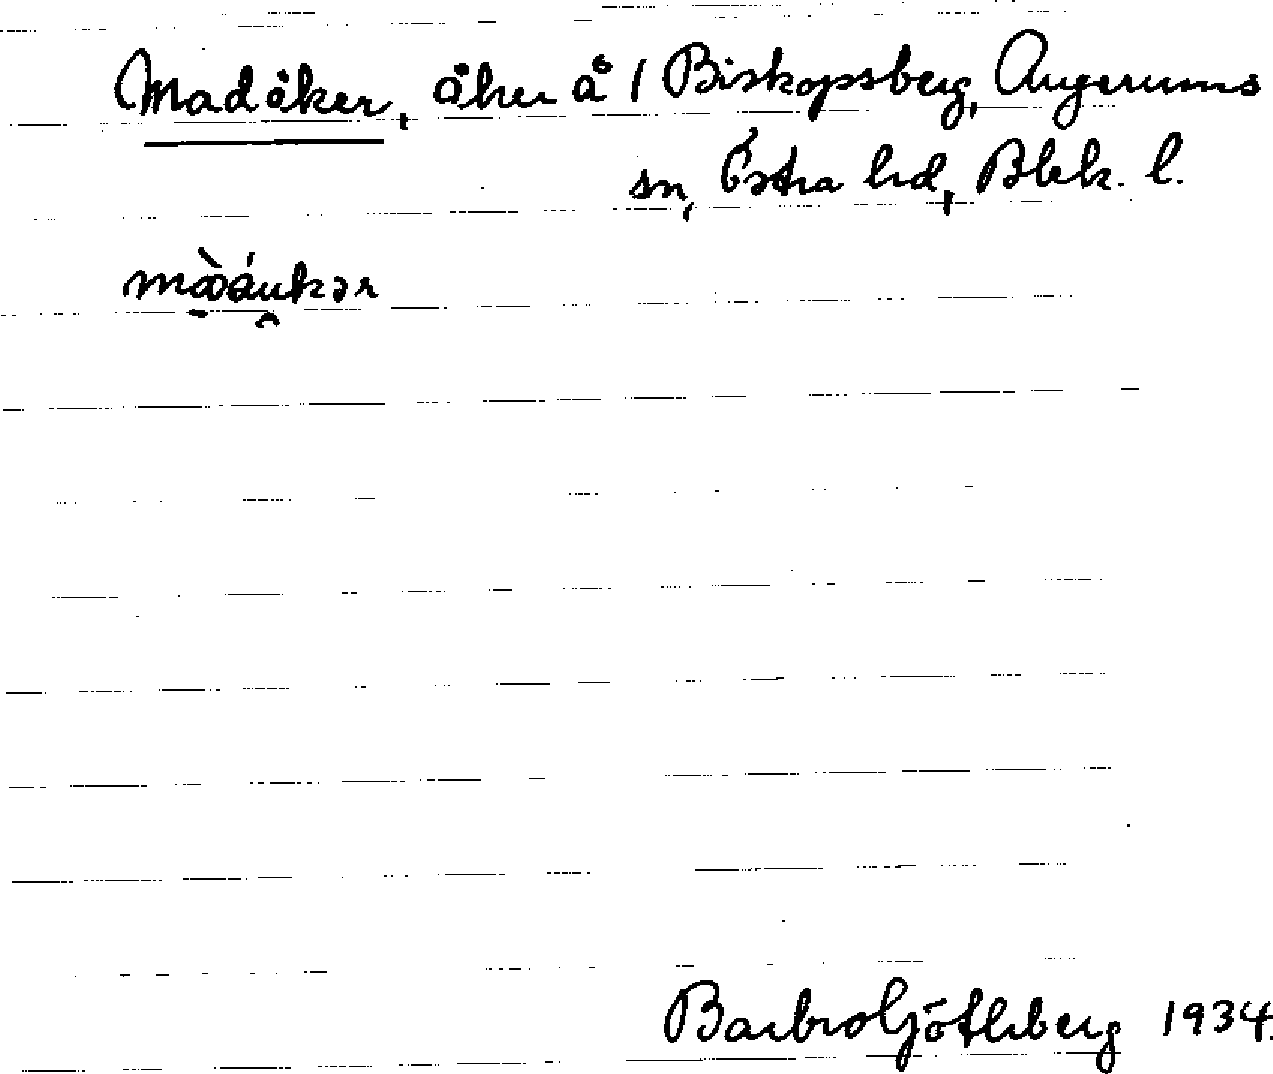 Madåker, åker å 1 Biskopsberg, Augerums
sn, Östra hd, Blek. l.
Barbro Götlsberg 1934.